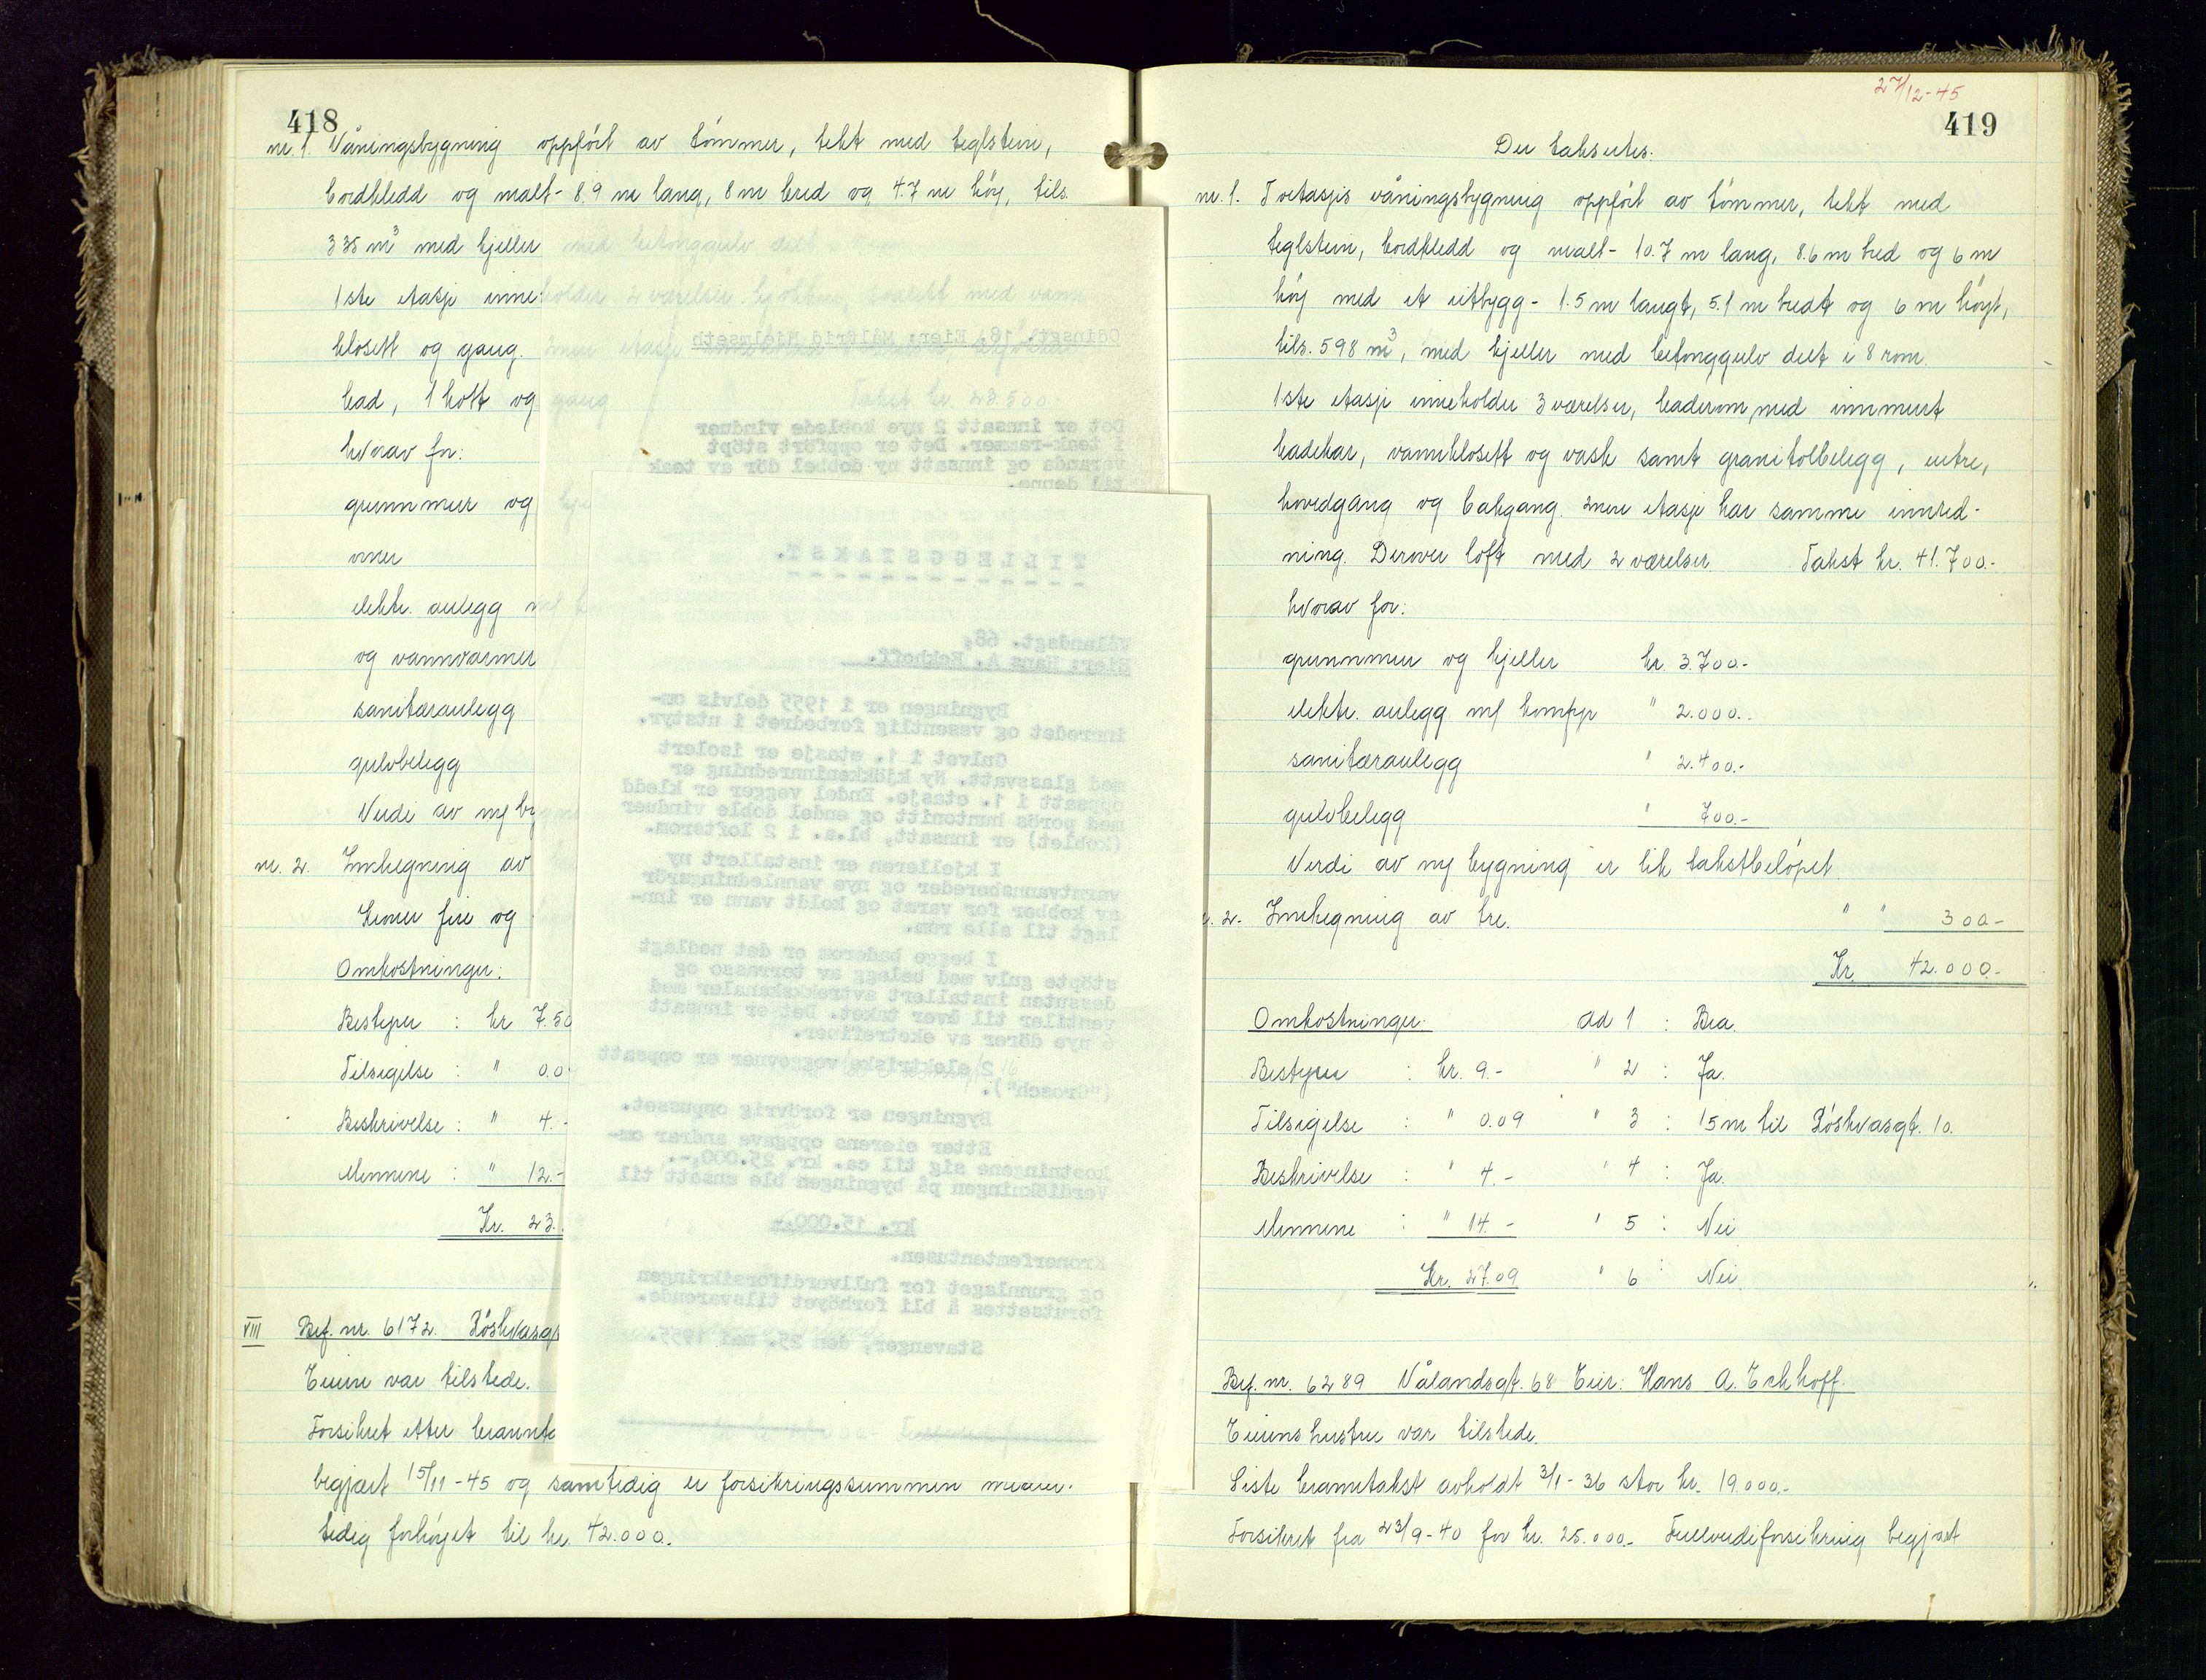 418
nr. 1. Våningsbygning oppført av tømmer, tekt med teglstein,
bordkledd og malt - 8.9 m lang, 8 m bred og 4.7 m høy, tils.
335 m³ med kjeller
1ste etasje inne
klosett og gang.
bad, 1 kott og
hvorav for:
grunnmur og
ovner
elektr. anlegg
og vannvarmer
sanitæranlegg
gulvbelegg
Verdi av ny by
nr. 2. Innhegning av
Kroner fire og
Omkostninger:
Bestyrer : kr 7.50
Tilsigelse : " 0.0
Beskrivelse : " 4.-
Mennene : " 12.-
Kr. 23.
VIII Bef. nr. 6172. Röskvasgt
Eieren var tilstede.
Forsikret etter brannta
begjært 15/11-45 og samtidig er forsikringssummen midler-
tidig forhøyet til kr. 42.000.-
Odinsgt. 18, Eier: Målfrid Hjelmseth
Takst kr. 23.500
Det er innsatt 2 nye koblede vinduer
i teak-rammer. Det er oppført støpt
veranda og innsatt ny dobbel dör av teak
til denne.
TILLEGGSTAKST.
Vålandsgt. 68,
Eier: Hans A. Eckhoff.
Bygningen er i 1955 delvis om-
innredet og vesentlig forbedret i utstyr.
Gulvet i 1. etasje er isolert
med glassvatt. Ny kjökkeninnredning er
oppsatt i 1. etasje. Endel vegger er kledd
med porös huntonitt og endel doble vinduer
(koblet) er innsatt, bl.a. i 2 loftsrom.
I kjelleren er installert ny
varmtvannsbereder og nye vannledningsrör
av kobber for varmt og koldt vann er inn-
lagt til alle rom.
I begge baderom er det nedlagt
stöpte gulv med belegg av terrasso og
dessuten installert avtrekkskanaler med
ventiler til över taket. Det er innsatt
6 nye dörer av eketrefiner.
2 elektriske veggovner er oppsatt
("Grosch").
Bygningen er forövrig oppusset.
Etter eierens oppgave andrar om-
kostningene sig til ca. kr. 25.000,-.
Verdiökningen på bygningen ble ansatt til
kr. 15.000,-
Kronerfemtentusen.
og grunnlaget for fullverdiforsikringen
forutsettes å bli forhöyet tilsvarende.
Stavanger, den 25. mai 1955.
27/12-45
419
Der takseres.
nr. 1. Toetasjes våningsbygning oppført av tømmer, tekt med
teglstein, bordkledd og malt - 10.7 m lang, 8.6 m bred og 6 m
høy med et utbygg - 1.5 m langt, 5.1 m bredt og 6 m høyt,
tils. 598 m³, med kjeller med betonggulv delt i 8 rom.
1ste etasje inneholder 3 værelser, baderom med innmurt
badekar, vannklosett og vask samt granitolbelegg, entre,
hovedgang og bakgang. 2nen etasje har samme innred-
ning. Derover loft med 2 værelser. Takst kr. 41.700.-
hvorav for:
grunnmur og kjeller kr. 3.700.-
elektr. anlegg m/ komfyr " 2.000.-
sanitæranlegg " 2.400.-
gulvbelegg " 700.-
Verdi av ny bygning er lik takstbeløpet.
r. 2. Innhegning av tre. " " 300.-
Kr. 42.000.-
Omkostninger: ad 1 : Bra.
Bestyrer : kr. 9.- " 2 : Ja.
Tilsigelse : " 0.09 " 3 : 15 m til Röskvasgt. 10.
Beskrivelse : " 4.- " 4 : Ja.
Mennene : " 14.- " 5 : Nei
Kr. 27.09 " 6 : Nei
Bef. nr. 6289 Vålandsgt. 68 Eier: Hans A. Eckhoff.
Eierens hustru var tilstede.
Siste branntakst avholdt 3/1-36 stor kr. 19.000.-
Forsikret fra 23/9-40 for kr. 25.000.- Fullverdiforsikring begjært